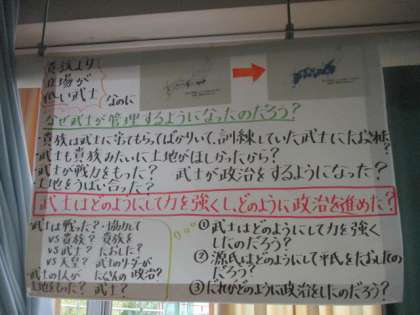 貴族より
立場が
低い武士
なのに
なぜ武士が管理するようになったのだろう?
・貴族は武士に守ってもらってばかりいて、訓練していた武士にたおされた?
・武士も貴族みたいに土地がほしかったから?
・武士が戦力をもった? 武士が政治をするようになった?
土地をうばい合った?
武士はどのようにして力を強くし、どのように政治を進めた?
武士は戦った?・協力して
vs 貴族? 貴族を
vs 武士? たおした?
vs 天皇? 武士のリーダーが
武士の1人が たくさんの 政治?
土地をもった? 武士?
①武士はどのようにして力を強く
したのだろう?
②源氏はどのようにして平氏をたおしたの
だろう?
③だれがどのように政治をしたのだろう?